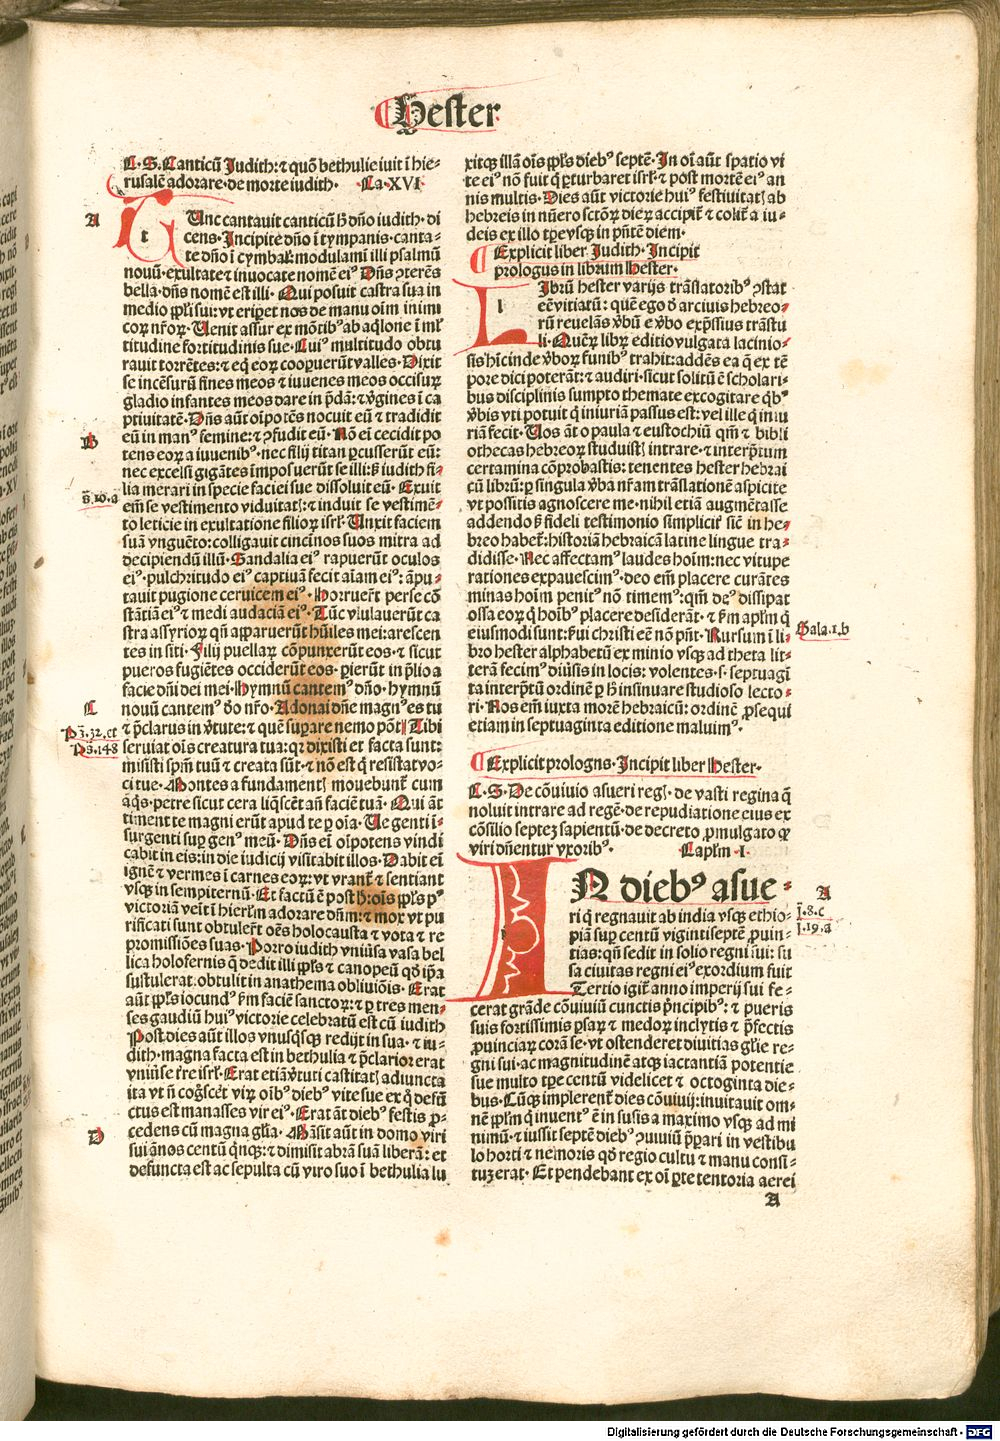 Hester
C·S·Canticū Judith: ⁊ quō bethulie iuit ī hie⸗
rusalē adorare· de morte iudith· Ca·XVI·
A
TUnc cantauit canticū ħ dño iudith· di
cens· Incipite dño ī tympanis· canta⸗
te dño ī cymbal· modulamī illi psalmū
nouū· exultate ⁊ inuocate nomē ei⁹ Dñs ↄterēs
bella· dñs nomē est illi· Qui posuit castra sua in
medio ppl̄i sui: vt eripet nos de manu oīm inimi
coꝝ nr̄oꝝ· Uenit assur ex mōtib⁹ ab aq̇lone ī ml̄
titudine fortitudinis sue· Cui⁹ multitudo obtu
rauit torrētes: ⁊ eq̇ eoꝝ coopuerūt valles· Dixit
se incēsurū fines meos ⁊ iuuenes meos occisuꝝ
gladio infantes meos dare in p̄dā: ⁊ v̄gines ī ca
ptiuitatē· Dñs aūt oīpotēs nocuit eū ⁊ tradidit
B
eū in man⁹ femine: ⁊ ↄfudit eū· Nō eī cecidit po
tens eoꝝ a iuuenib⁹· nec filij titan ꝑcusserūt eū:
nec excelsi gigātes imposuerūt se illi: s; iudith fi⸗
lia merari in specie faciei sue dissoluit eū· Exuit
s̄·10·a
em̄ se vestimento viduitatꝭ: ⁊ induit se vestimē⸗
to leticie in exultatione filioꝝ isrl̄· Unxit faciem
suā vnguēto: colligauit cincinos suos mitra ad
decipiendū illū· Sandalia ei⁹ rapuerūt oculos
ei⁹· pulchritudo ei⁹ captiuā fecit aīam ei⁹: āpu⸗
tauit pugione ceruicem ei⁹· Horruer̄t perse cō
stātiā ei⁹ ⁊ medi audaciā ei⁹· Tūc vlulauerūt ca
stra assyrioꝝ qn̄ apparuerūt hūiles mei: arescen
tes in siti· Filij puellaꝝ cōpunxerūt eos· ⁊ sicut
pueros fugiētes occiderūt eos· pierūt in p̄lio a
facie dn̄i dei mei· Hymnū cantem⁹ dño· hymnū
C
nouū cantem⁹ dō nr̄o· Adonai dñe magn⁹ es tu
P̄s·32·et
⁊ p̄clarus in v̄tute: ⁊ quē supare nemo pōt Tibi
P̄s·148
seruiat oīs creatura tua: qꝛ dixisti et facta sunt:
misisti spm̄ tuū ⁊ creata sūt· ⁊ nō est q̇ resistat vo⸗
ci tue· Montes a fundamentꝭ mouebunt̄ cum
aq̇s· petre sicut cera liq̄scēt añ faciē tuā· Qui āt
timent te magni erūt apud te ꝑ oīa· Ue genti ī⸗
surgenti suꝑ gen⁹ meū· Dñs eī oīpotens vindi
cabit in eis: in die iudicij visitabit illos· Dabit eī
ignē ⁊ vermes ī carnes eoꝝ: vt vrant̄ ⁊ sentiant
vsqꝫ in sempiternū· Et factū ē post h· oīs ppl̄s p⁹
victoriā veīt ī hierlm̄ adorare dñm: ⁊ mox vt pu
rificati sunt obtuler̄t oēs holocausta ⁊ vota ⁊ re
promissiōes suas· Porro iudith vniūsa vasa bel
lica holofernis q̄ dedit illi ppl̄s ⁊ canopeū qd̄ ip̄a
sustulerat· obtulit in anathema obliuiōis· Erat
aūt ppl̄s iocund⁹ s̄m faciē sanctoꝝ: ⁊ ꝑ tres men⸗
ses gaudiū hui⁹ victorie celebratū est cū iudith
Post dies aūt illos vnusq̄sqꝫ redijt in sua· ⁊ iu⸗
dith· magna facta est in bethulia ⁊ p̄clarior erat
vniūse tr̄re isrl̄· Erat etiā v̄tuti castitatꝭ adiuncta
ita vt ñ cog̃scēt viꝝ oīb⁹ dieb⁹ vite sue ex q̊ defū
ctus est manasses vir ei⁹· Erat āt dieb⁹ festis ꝓ⸗
D
cedens cū magna gl̄ia· Māsit aūt in domo viri
sui ānos centū q̄nqꝫ: ⁊ dimisit abrā suā liberā: et
defuncta est ac sepulta cū viro suo ī bethulia lu
xitqꝫ illā oīs ppl̄s dieb⁹ septē· In oī aūt spatio vi
te ei⁹ nō fuit q̇ ꝑturbaret isrl̄· ⁊ post mortē ei⁹ an
nis multis· Dies aūt victorie hui⁹ festiuitatꝭ ab
hebreis in nūero sctōꝝ dieꝝ accipit̄ ⁊ colit̄ a iu⸗
deis ex illo tꝑe vsqꝫ in pn̄tē diem·
Explicit liber Judith· Incipit
prologus in librum Hester·
LIbrū hester varijs trāslatorib⁹ ↄstat
eē vitiatū: quē ego d̄ arciuis hebreo⸗
rū reuelās v̄bū e v̄bo exp̄ssius trāstu
li· Quē libꝝ editio vulgata lacinio⸗
sis hīcinde v̄boꝝ funib⁹ trahit: addēs ea q̄ ex tē
pore dici poterāt: ⁊ audiri· sicut solitū ē scholari⸗
bus disciplinis sumpto themate excogitare qb⁹
v̄bis vti potuit q̇ iniuriā passus est: vel ille q̇ iniu
riā fecit· Uos āt o paula ⁊ eustochiū qm̄ ⁊ bibli
othecas hebreoꝝ studuistꝭ intrare· ⁊ interp̄tum
certamina cōprobastis: tenentes hester hebrai
cū librū: ꝑ singula v̄ba nr̄am trāslationē aspicite
vt possitis agnoscere me· nihil etiā augmētasse
addendo s; fideli testimonio simplicit̄ sic̄ in he⸗
breo habet̄: historiā hebraicā latine lingue tra⸗
didisse· Nec affectam⁹ laudes hoīm: nec vitupe
rationes expauescim⁹· deo em̄ placere curātes
minas hoīm penit⁹ nō timem⁹: qm̄ de⁹ dissipat
ossa eoꝝ q̇ hoīb⁹ placere desiderāt· ⁊ s̄m apl̄m q̇
eiusmodi sunt: s̄ui christi eē nō pn̄t· Rursum ī li⸗
Gala·1·b
bro hester alphabetū ex minio vsqꝫ ad theta lit⸗
terā fecim⁹ diūsis in locis: volentes·s· septuagī
ta interp̄tū ordinē ꝑ ħ insinuare studioso lecto⸗
ri· Nos em̄ iuxta morē hebraicū: ordinē ꝓsequi
etiam in septuaginta editione maluim⁹·
Explicit prologus· Incipit liber Hester·
C·S· De cōuiuio asueri regꝭ· de vasti regina q̄
noluit intrare ad regē· de repudiatione eius ex
cōsilio septeꝫ sapientū· de decreto ꝓmulgato qꝫ
viri dn̄entur vxorib⁹· Caplm̄ ·I·
IN dieb⁹ asue⸗
A
ri q̇ regnauit ab india vsqꝫ ethio⸗
j̄·8·c
piā suꝑ centū viginti septē ꝓuin⸗
j̄·19·a
tias: qn̄ sedit in solio regni sui: su
sa ciuitas regni ei⁹ exordium fuit
Tertio igit̄ anno imperij sui fe⸗
cerat grāde cōuiuiū cunctis p̄ncipib⁹: ⁊ pueris
suis fortissimis ꝑsaꝝ ⁊ medoꝝ inclytis ⁊ p̄fectis
ꝓuinciaꝝ corā se· vt ostenderet diuitias gl̄ie re⸗
gni sui· ac magnitudinē atqꝫ iactantiā potentie
sue multo tꝑe centū videlicet ⁊ octoginta die⸗
bus· Cūqꝫ implerent̄ dies cōuiuij: inuitauit om⸗
nē ppl̄m q̇ inuent⁹ ē in susis a maximo vsqꝫ ad mi
nimū· ⁊ iussit septē dieb⁹ ↄuiuiū p̄pari in vestibu
lo horti ⁊ nemoris qd̄ regio cultu ⁊ manu consi⸗
tuꝫ erat· Et pendebant ex oī ꝑte tentoria aerei
A
Digitalisierung gefördert durch die Deutsche Forschungsgemeinschaft - DFG